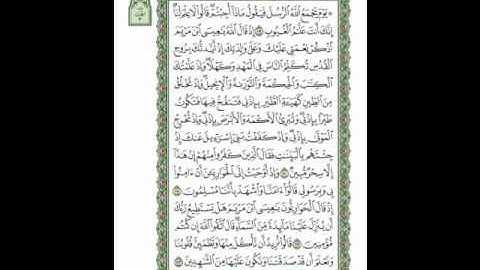 ۞ يَوْمَ يَجْمَعُ ٱللَّهُ ٱلرُّسُلَ فَيَقُولُ مَاذَآ أُجِبْتُمْ ۖ قَالُوا۟ لَا عِلْمَ لَنَآ ۖ
إِنَّكَ أَنتَ عَلَّٰمُ ٱلْغُيُوبِ ١٠٩ إِذْ قَالَ ٱللَّهُ يَٰعِيسَى ٱبْنَ مَرْيَمَ
ٱذْكُرْ نِعْمَتِى عَلَيْكَ وَعَلَىٰ وَٰلِدَتِكَ إِذْ أَيَّدتُّكَ بِرُوحِ
ٱلْقُدُسِ تُكَلِّمُ ٱلنَّاسَ فِى ٱلْمَهْدِ وَكَهْلًا ۖ وَإِذْ عَلَّمْتُكَ
ٱلْكِتَٰبَ وَٱلْحِكْمَةَ وَٱلتَّوْرَىٰةَ وَٱلْإِنجِيلَ ۖ وَإِذْ تَخْلُقُ
مِنَ ٱلطِّينِ كَهَيْـَٔةِ ٱلطَّيْرِ بِإِذْنِى فَتَنفُخُ فِيهَا فَتَكُونُ
طَيْرًۢا بِإِذْنِى ۖ وَتُبْرِئُ ٱلْأَكْمَهَ وَٱلْأَبْرَصَ بِإِذْنِى ۖ وَإِذْ تُخْرِجُ
ٱلْمَوْتَىٰ بِإِذْنِى ۖ وَإِذْ كَفَفْتُ بَنِىٓ إِسْرَٰٓءِيلَ عَنكَ إِذْ
جِئْتَهُم بِٱلْبَيِّنَٰتِ فَقَالَ ٱلَّذِينَ كَفَرُوا۟ مِنْهُمْ إِنْ هَٰذَآ
إِلَّا سِحْرٌ مُّبِينٌ ١١٠ وَإِذْ أَوْحَيْتُ إِلَى ٱلْحَوَارِيِّـۧنَ أَنْ ءَامِنُوا۟
بِى وَبِرَسُولِى قَالُوٓا۟ ءَامَنَّا وَٱشْهَدْ بِأَنَّنَا مُسْلِمُونَ ١١١
إِذْ قَالَ ٱلْحَوَارِيُّونَ يَٰعِيسَى ٱبْنَ مَرْيَمَ هَلْ يَسْتَطِيعُ رَبُّكَ
أَن يُنَزِّلَ عَلَيْنَا مَآئِدَةً مِّنَ ٱلسَّمَآءِ ۖ قَالَ ٱتَّقُوا۟ ٱللَّهَ إِن كُنتُم
مُّؤْمِنِينَ ١١٢ قَالُوا۟ نُرِيدُ أَن نَّأْكُلَ مِنْهَا وَتَطْمَئِنَّ قُلُوبُنَا
وَنَعْلَمَ أَن قَدْ صَدَقْتَنَا وَنَكُونَ عَلَيْهَا مِنَ ٱلشَّٰهِدِينَ ١١٣